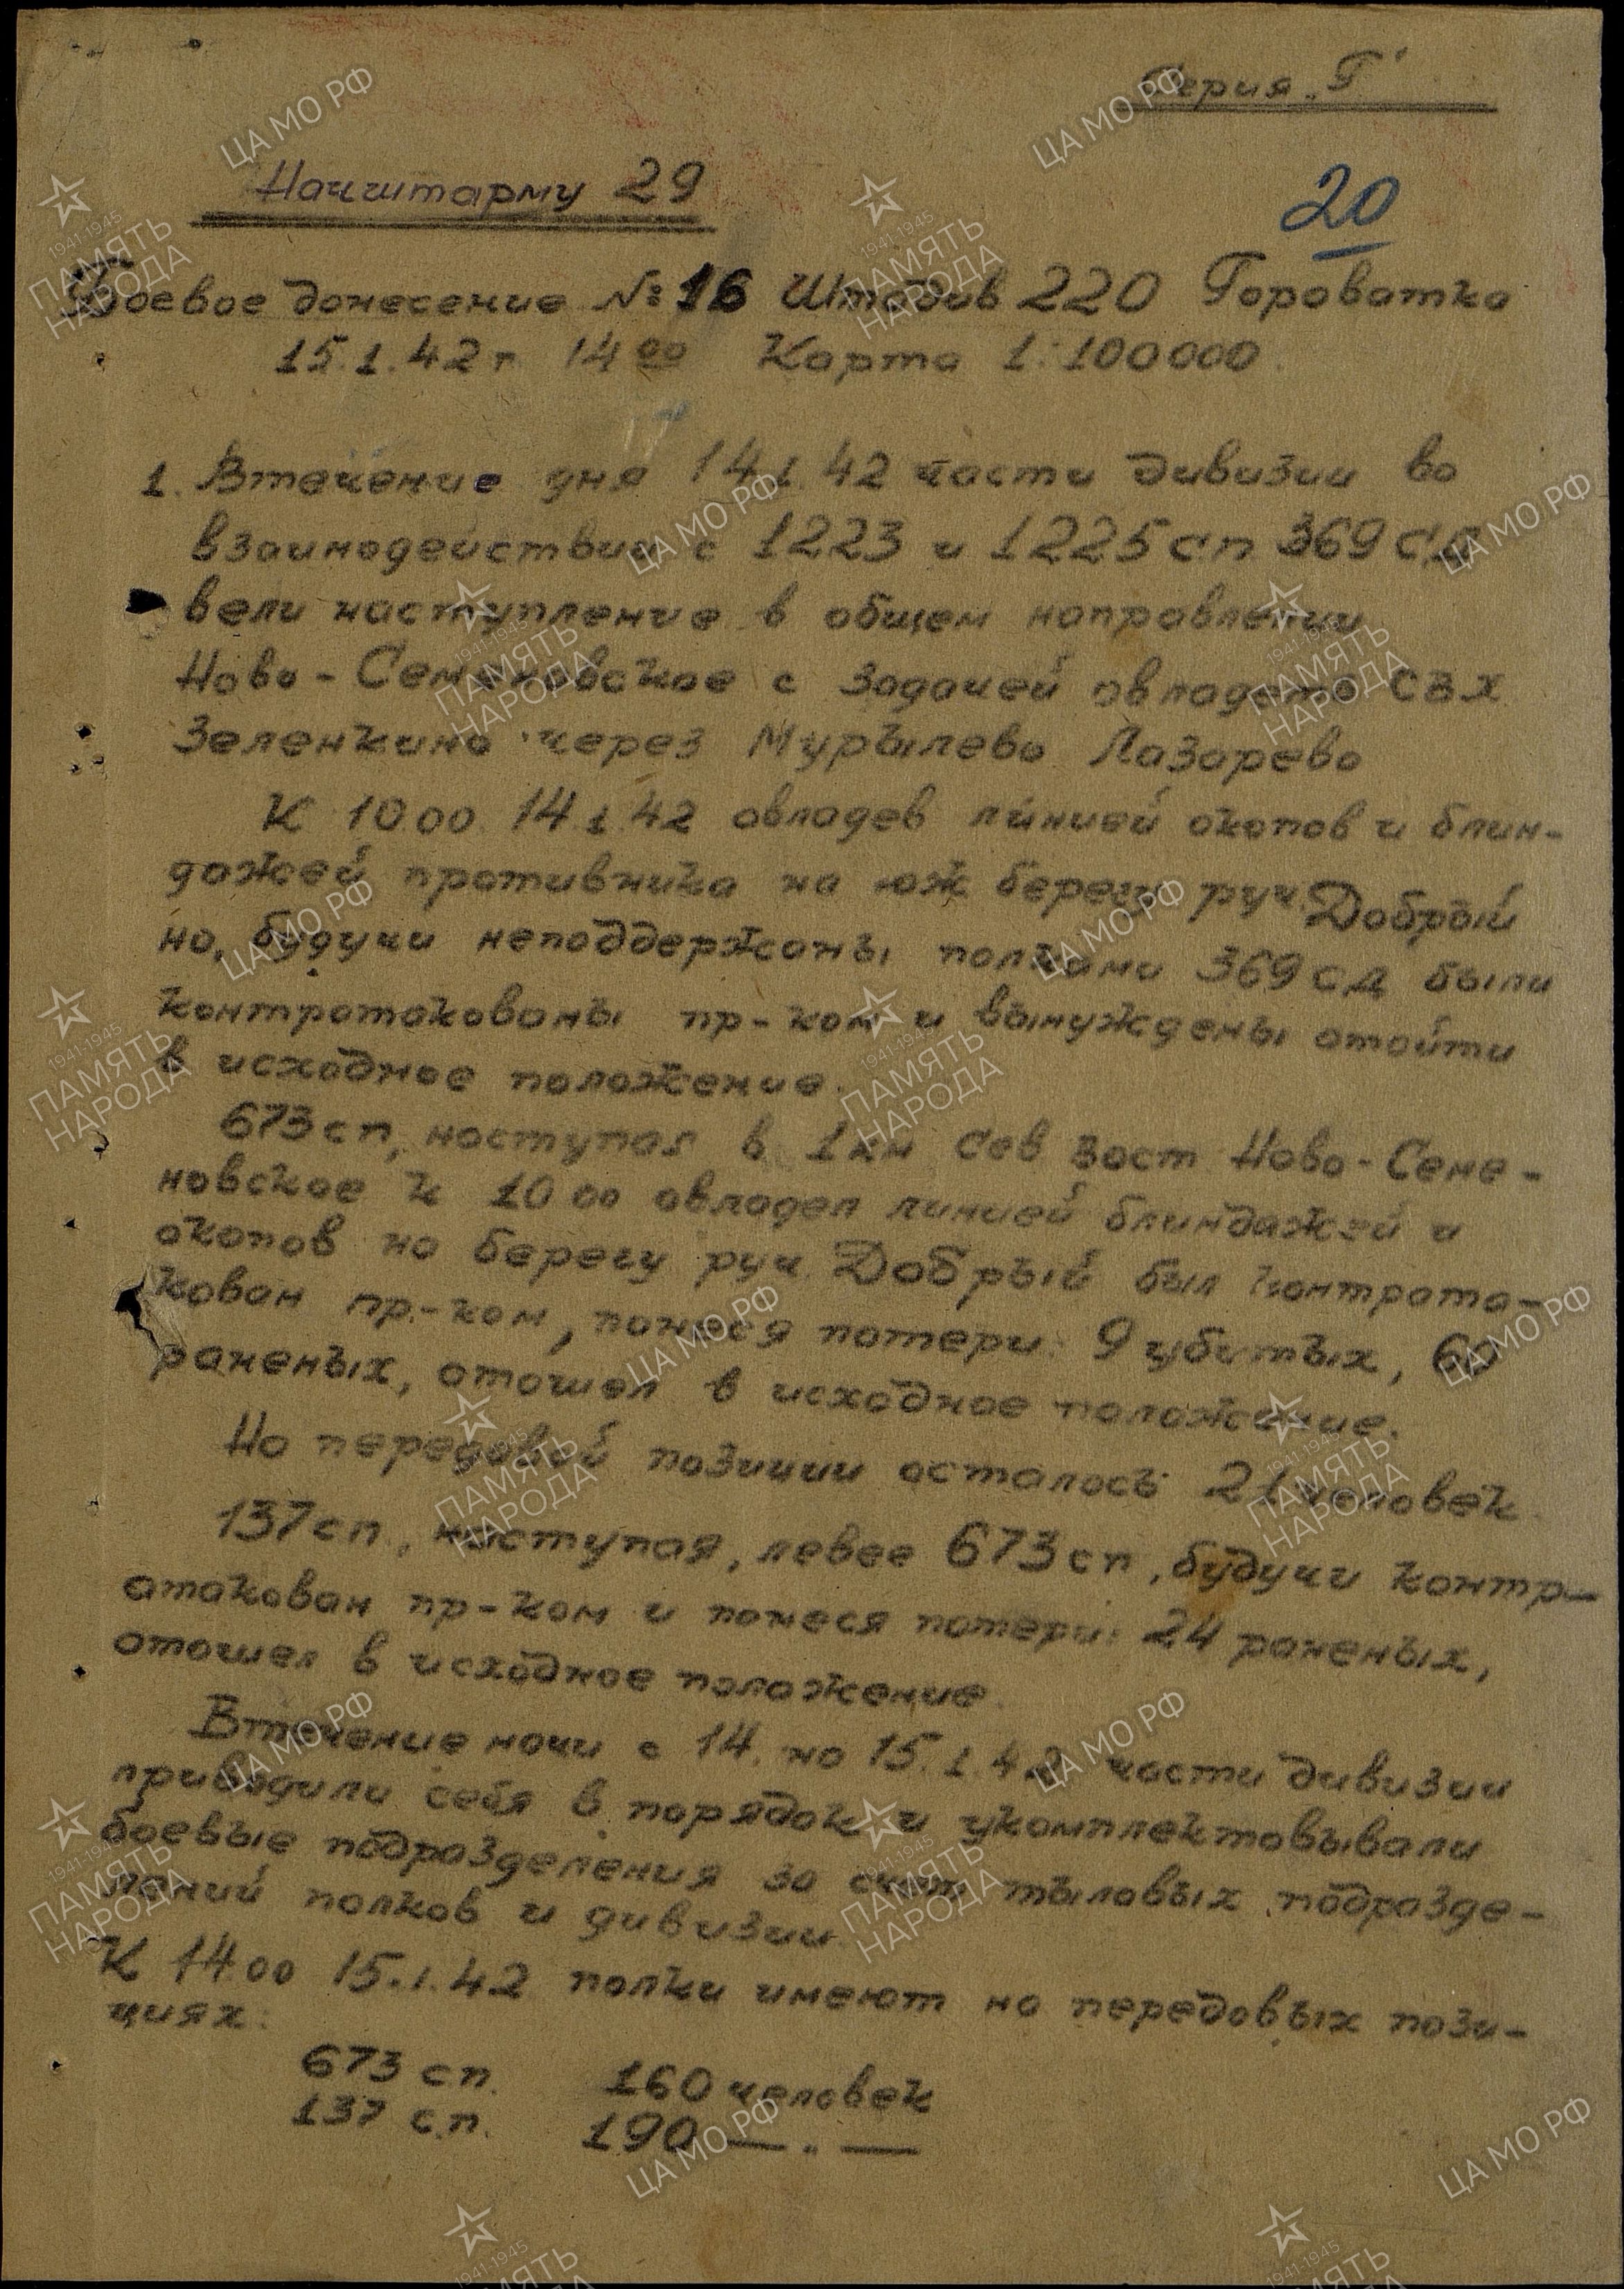 Серия „Г"
Начштарму 29
20
Боевое донесение №16 Штадив 220 Гороватка
15.1.42 г. 14 00 Карта 1:100000.
1. Втечение дня 14.1.42 части дивизии во
взаимодействии с 1223 и 1225 сп 369 СД
вели наступление в общем направлении
Ново-Семеновское с задачей овладеть СВХ
Зеленкино через Мурылево Лазарево
К 10.00 14.1.42 овладев линией окопов и блин-
дажей противника на юж берегу руч. Добрый
но, будучи неподдержаны полками 369 СД были
контратакованы пр-ком и вынуждены отойти
в исходное положение.
673 сп, наступая в 1 км сев вост Ново-Семе-
новское к 10 00 овладел линией блиндажей и
окопов на берегу руч. Добрый был контрата-
кован пр.-ком, понеся потери: 9 убитых, 60
раненых, отошел в исходное положение.
На передовой позиции осталось 21 человек
137 сп, наступая, левее 673 сп, будучи контр-
атакован пр-ком и понеся потери: 24 раненых,
отошел в исходное положение.
Втечение ночи с 14. на 15.1.42 части дивизии
приводили себя в порядок и укомплектовывали
боевые подразделения за счет тыловых подразде-
лений полков и дивизии.
К 14.00 15.1.42 полки имеют на передовых пози-
циях:
673 сп. 160 человек
137 сп. 190 — „ —